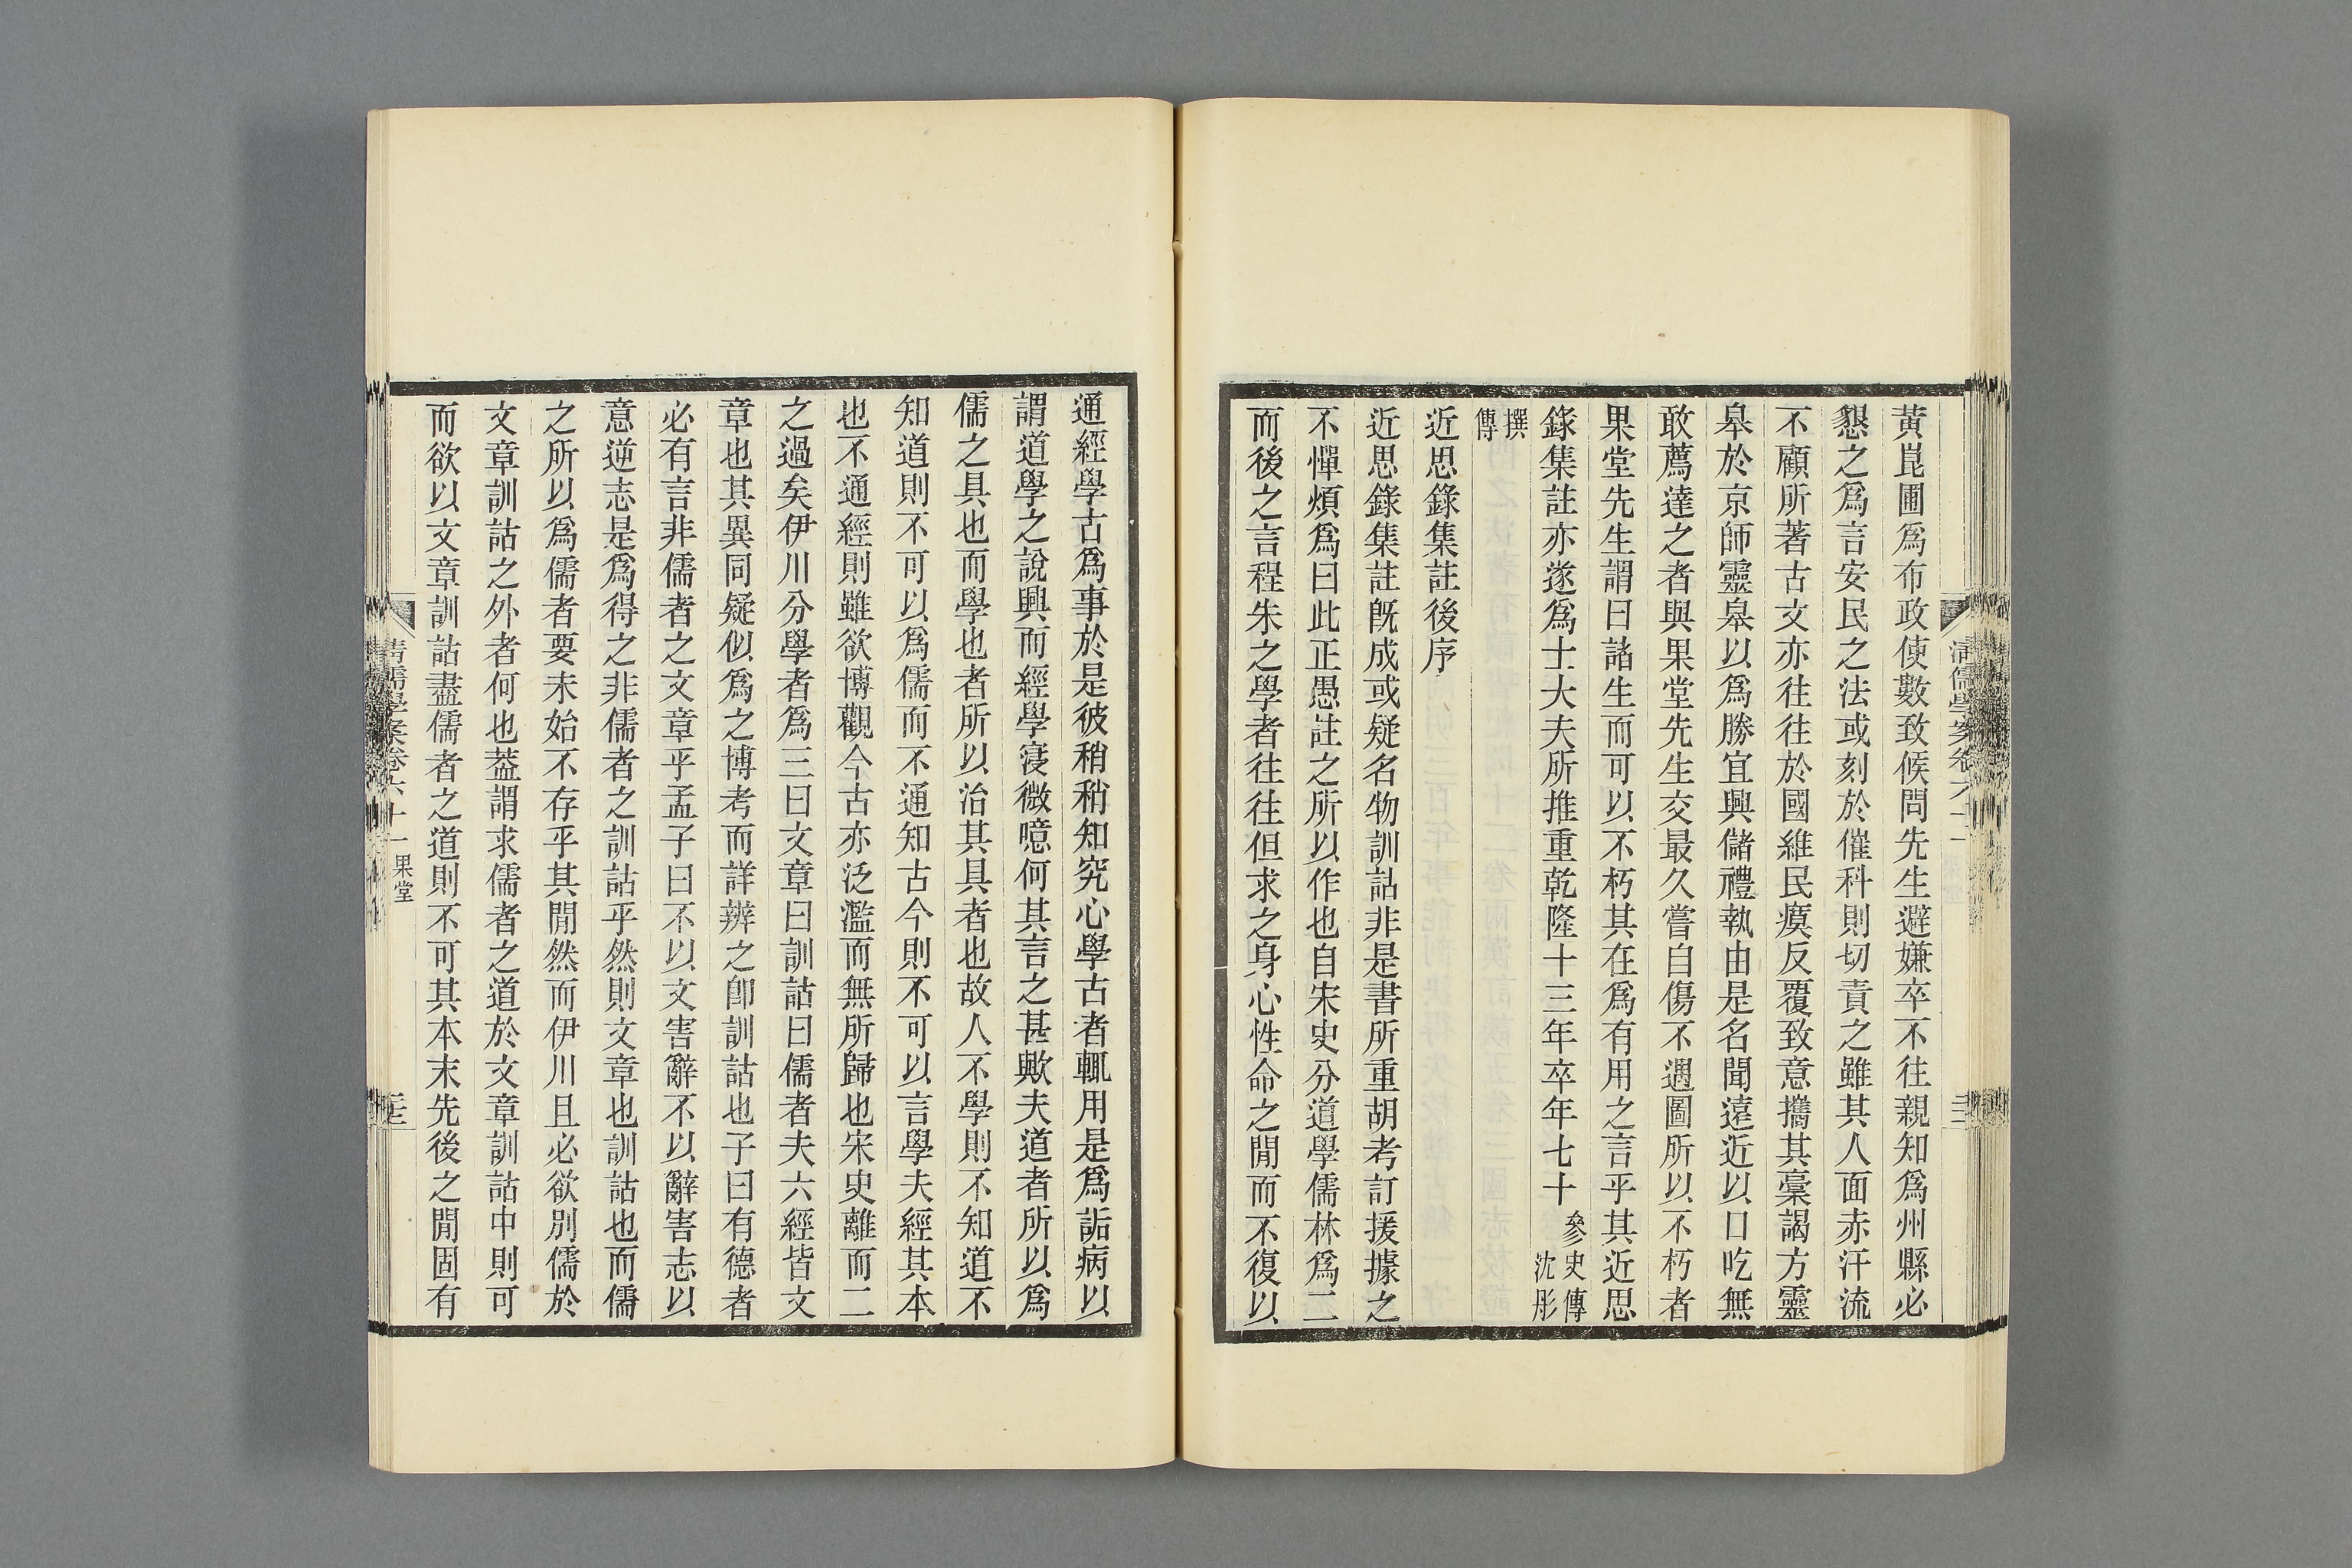 黃崑圃爲布政使數致候問先生避嫌卒不往親知爲州縣必
懇之爲言安民之法或刻於催科則切責之雖其人面赤汗流
不顧所著古文亦往往於國維民瘼反覆致意攜其稾謁方靈
皋於京師靈皋以爲勝宜興儲禮執由是名聞遠近以口吃無
敢薦達之者與果堂先生交最久嘗自傷不遇圖所以不朽者
果堂先生謂曰諸生而可以不朽其在爲有用之言乎其近思
錄集註亦遂爲士大夫所推重乾隆十三年卒年七十參史傳
沈彤
撰
傳
近思錄集註後序
近思錄集註旣成或疑名物訓詁非是書所重胡考訂援據之
不憚煩爲曰此正愚註之所以作也自宋史分道學儒林爲二
而後之言程朱之學者往往但求之身心性命之閒而不復以
通經學古爲事於是彼稍稍知究心學古者輒用是爲詬病以
謂道學之說興而經學寖微噫何其言之甚歟夫道者所以爲
儒之具也而學也者所以治其具者也故人不學則不知道不
知道則不可以爲儒而不通知古今則不可以言學夫經其本
也不通經則雖欲博觀今古亦泛濫而無所歸也宋史離而二
之過矣伊川分學者爲三曰文章曰訓詁曰儒者夫六經皆文
章也其異同疑似爲之博考而詳辨之卽訓詁也子曰有德者
必有言非儒者之文章乎孟子曰不以文害辭不以辭害志以
意逆志是爲得之非儒者之訓詁乎然則文章也訓詁也而儒
之所以爲儒者要未始不存乎其閒然而伊川且必欲別儒於
文章訓詁之外者何也蓋謂求儒者之道於文章訓詁中則可
而欲以文章訓詁盡儒者之道則不可其本末先後之閒固有
清儒學案卷六十一 果堂